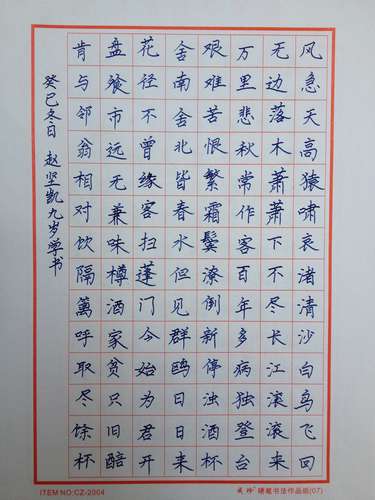 风急天高猿啸哀渚清沙白鸟飞回
无边落木萧萧下不尽长江滚滚来
万里悲秋常作客百年多病独登台
艰难苦恨繁霜鬓潦倒新停浊酒杯
舍南舍北皆春水但见群鸥日日来
花径不曾缘客扫蓬门今始为君开
盘飧市远无兼味樽酒家贫只旧醅
肯与邻翁相对饮隔篱呼取尽馀杯
癸巳冬日 赵坚凯九岁学书
ITEM NO:CZ-2004
硬笔书法作品纸(07)